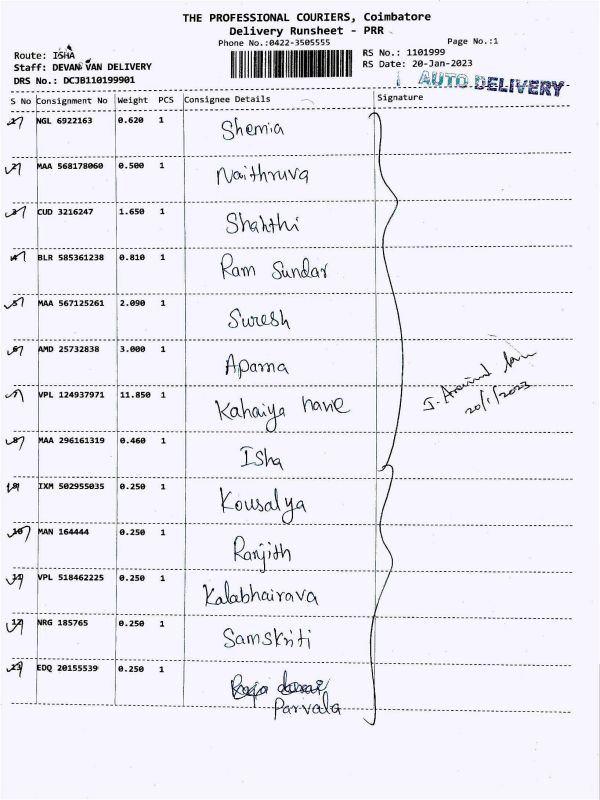 THE PROFESSIONAL COURIERS, Coimbatore
Delivery Runsheet - PRR
Phone No.:0422-3505555
Page No.:1
Route: ISHA
RS No.: 1101999
Staff: DEVAN VAN DELIVERY
RS Date: 20-Jan-2023
DRS No.: DCJB110199901
AUTO DELIVERY
S No Consignment No Weight PCS Consignee Details Signature
1 NGL 6922163 0.620 1 Shemia
2 MAA 568178060 0.500 1 Naithruva
3 CUD 3216247 1.650 1 Shahthi
4 BLR 585361238 0.810 1 Ram Sundar
5 MAA 567125261 2.090 1 Suresh
6 AMD 25732838 3.000 1 Aparna
7 VPL 124937971 11.850 1 Kahaiya nane
8 MAA 296161319 0.460 1 Isha
9 IXM 502955035 0.250 1 Kousalya
10 MAN 164444 0.250 1 Ranjith
11 VPL 518462225 0.250 1 Kalabhairava
12 NRG 185765 0.250 1 Samskriti
13 EDQ 20155539 0.250 1
Parvala
J. Aravind
20/1/2023